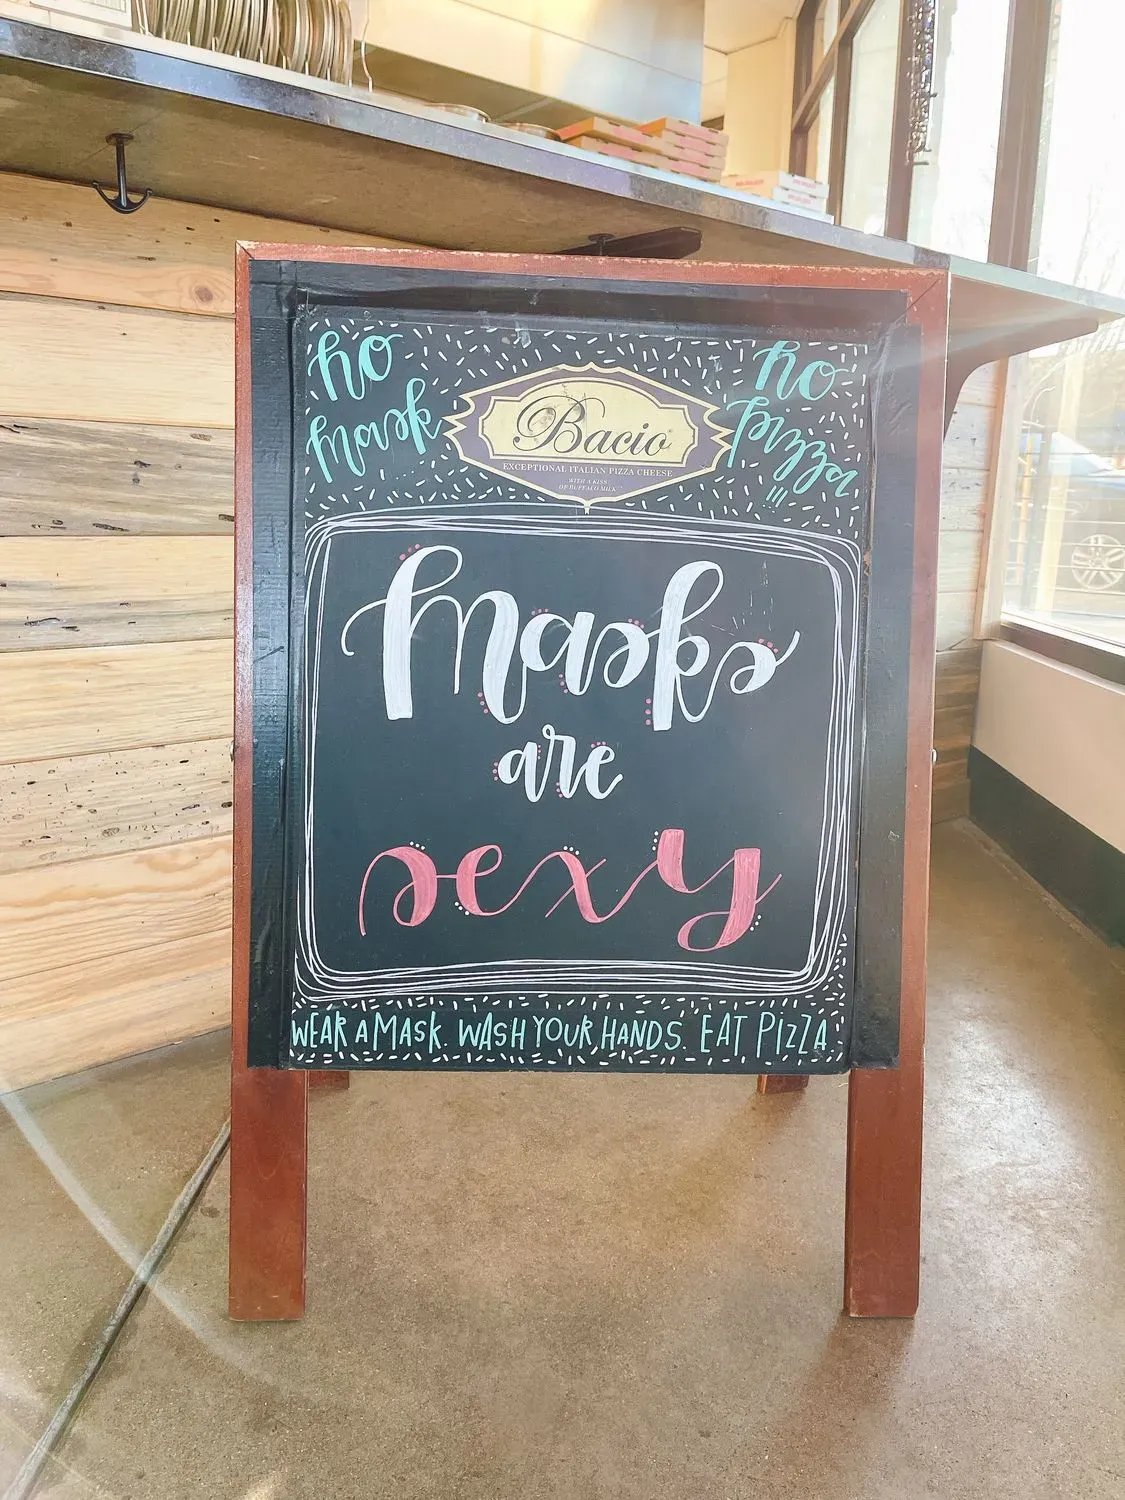 no
mask
no
pizza
!!!
Bacio
EXCEPTIONAL ITALIAN PIZZA CHEESE
WITH A KISS
OF BUFFALO MILK
Masks
are
sexy
WEAR A MASK. WASH YOUR HANDS. EAT PIZZA.